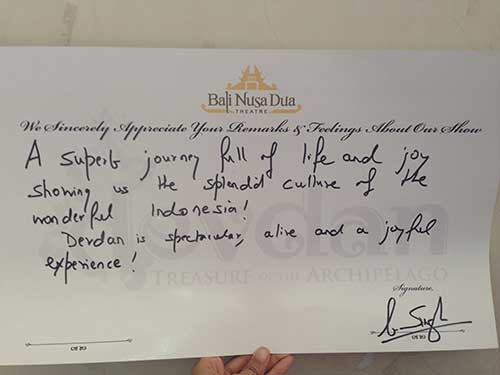 Bali Nusa Dua
THEATRE
We Sincerely Appreciate Your Remarks & Feelings About Our Show
A superb journey full of life and joy
showing us the splendid culture of the
wonderful Indonesia!
Devdan is spectacular, alive and a joyful
experience!
Devdan
TREASURE OF THE ARCHIPELAGO
Signature,
Singh